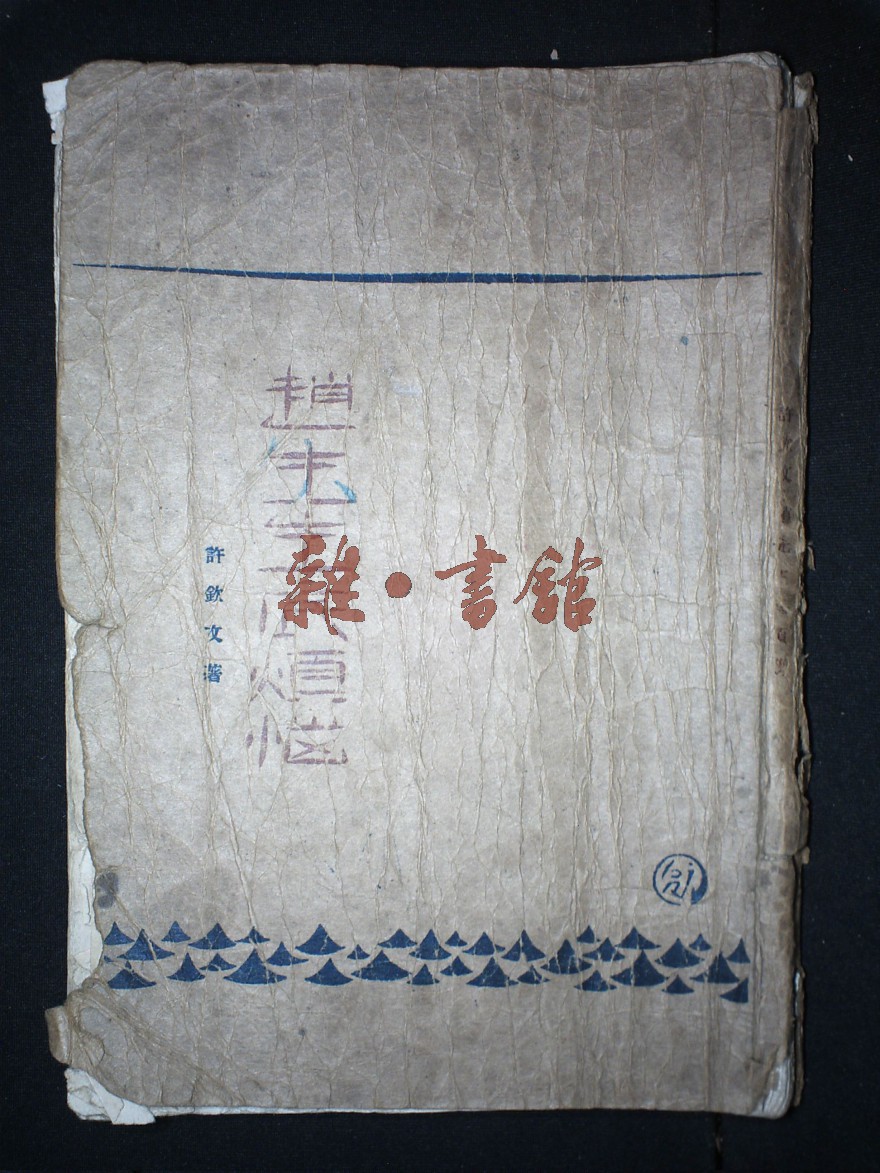 趙先生底煩惱
許欽文著
雜·書館